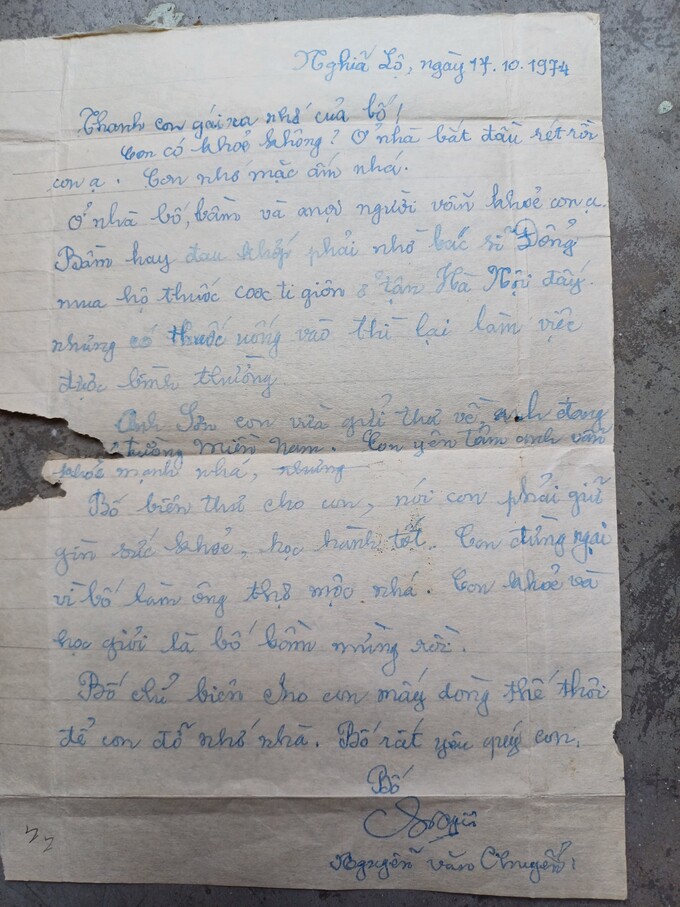 Nghĩa Lộ, ngày 17.10.1974
Thanh con gái xa nhớ của bố!
Con có khoẻ không? Ở nhà bắt đầu rét rồi
con ạ. Con nhớ mặc ấm nhá.
Ở nhà bố, bầm và mọi người vẫn khoẻ con ạ.
Bầm hay đau khớp phải nhờ bác sĩ Đổng
mua hộ thuốc coocti giôn ở tận Hà Nội đấy.
nhưng có thuốc uống vào thì lại làm việc
được bình thường
Anh Sơn con vừa gửi thư về anh đang
trường miền Nam. Con yên tâm anh vẫn
khoẻ mạnh nhá, nhưng
Bố biên thư cho con, nói con phải giữ
gìn sức khoẻ, học hành tốt. Con đừng ngại
vì bố làm ông thợ mộc nhá. Con khoẻ và
học giỏi là bố bầm mừng rồi.
Bố chỉ biên cho con mấy dòng thế thôi
để con đỡ nhớ nhà. Bố rất yêu quý con.
Bố
Nguyễn văn Chuyển